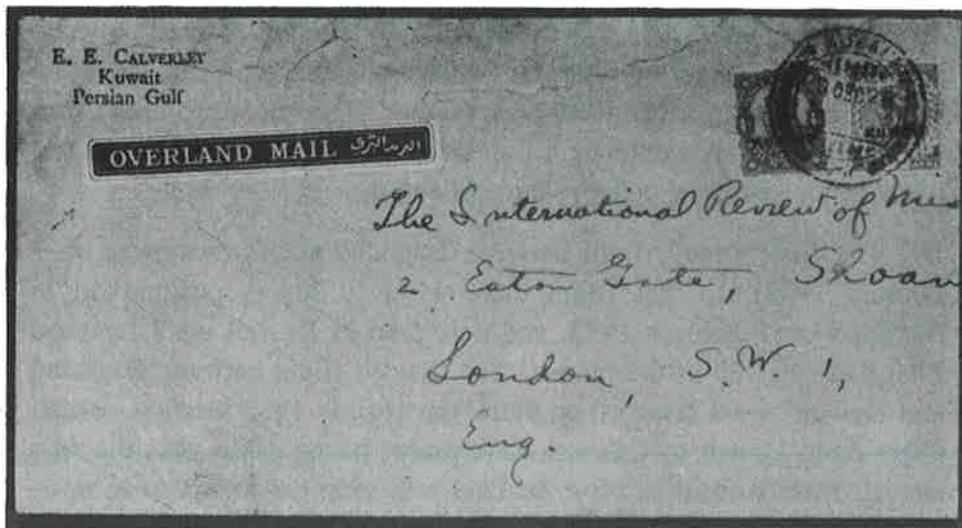 E. E. CALVERLEY
Kuwait
Persian Gulf
OVERLAND MAIL
The International Review of Mis
2 Eaton Gate, Sloan
London, S.W. 1,
Eng.